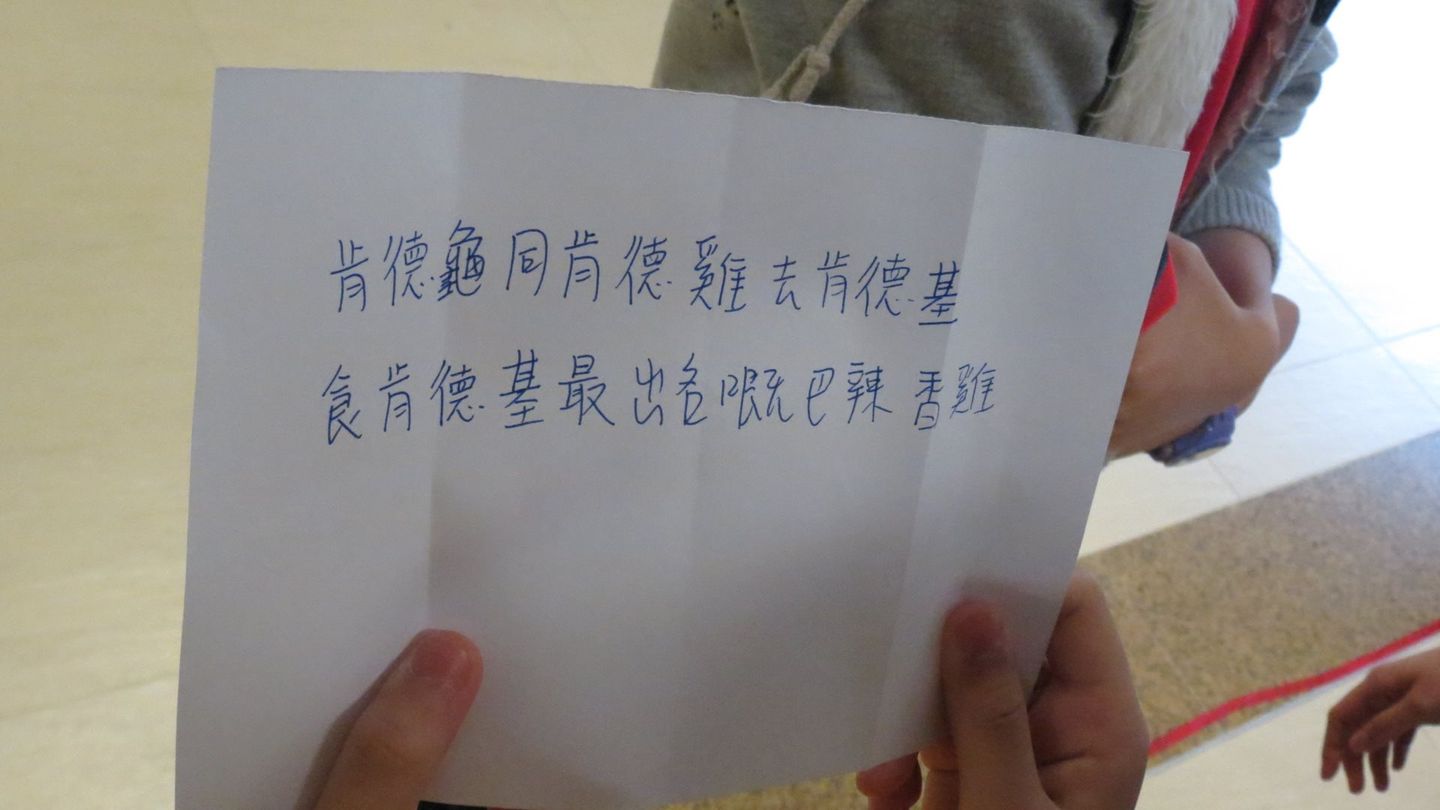 肯德龜同肯德雞去肯德基
食肯德基最出名嘅巴辣香雞